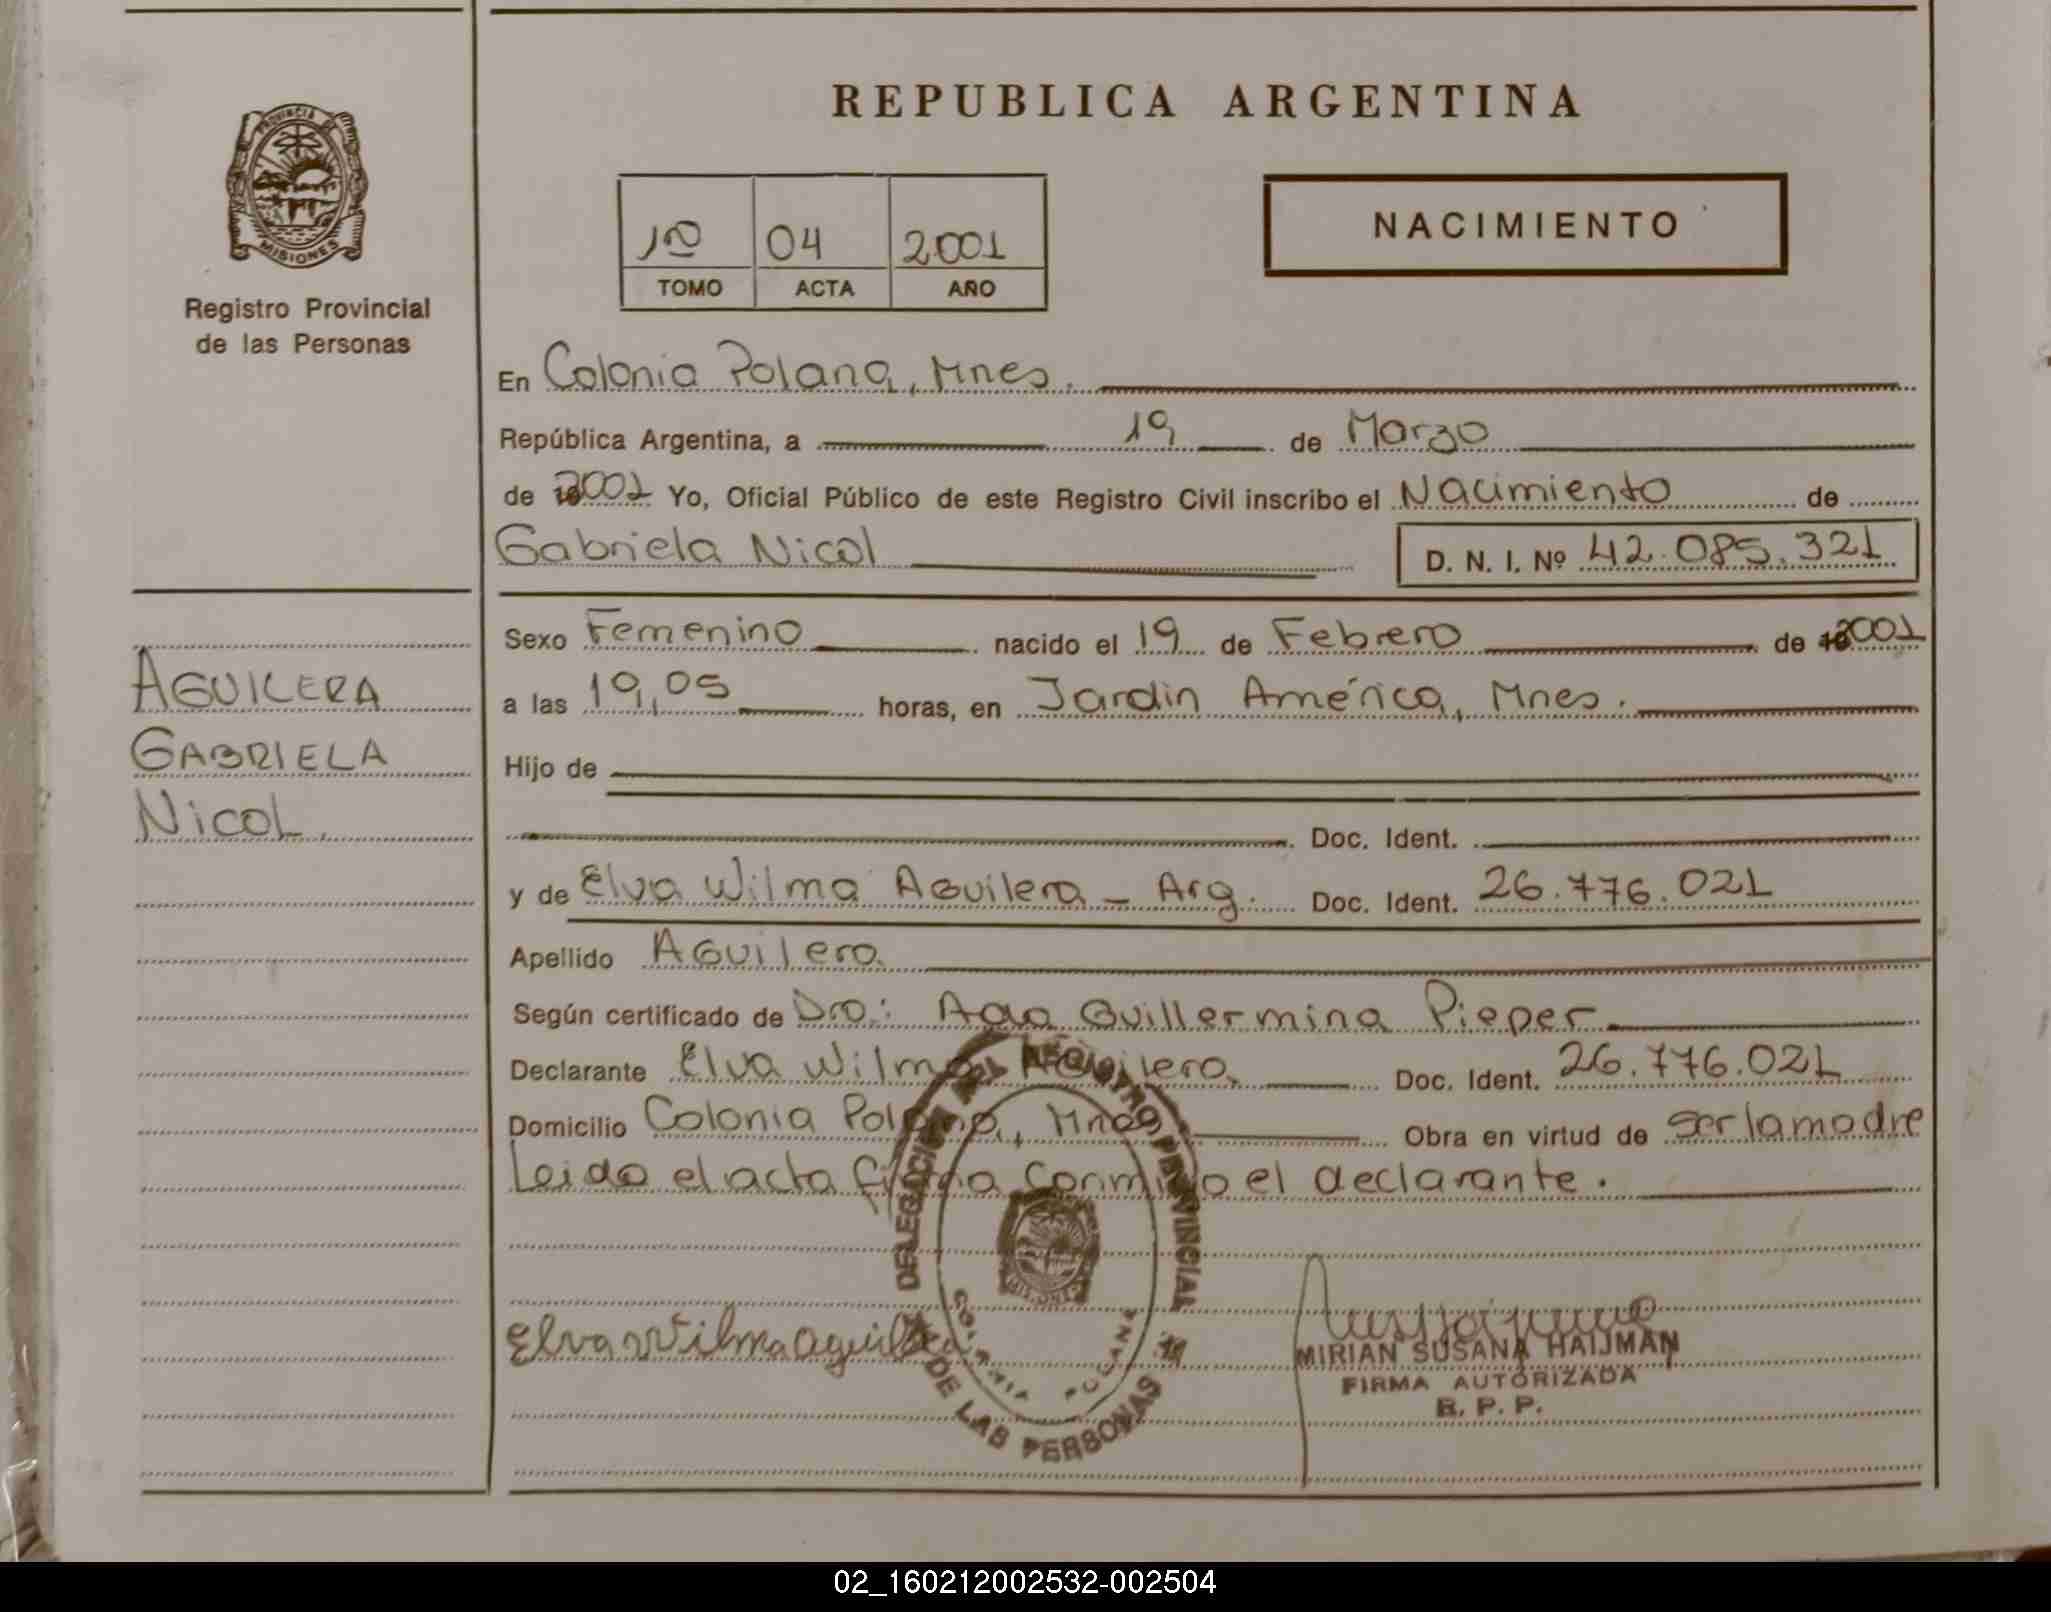 REPUBLICA ARGENTINA
PROVINCIA DE
MISIONES
Registro Provincial
de las Personas
1º 04 2001
TOMO ACTA AÑO
NACIMIENTO
En Colonia Polana, Mnes.
República Argentina, a 19 de Marzo
de 2001 Yo, Oficial Público de este Registro Civil inscribo el Nacimiento de
Gabriela Nicol D. N. I. Nº 42.085.321
Sexo Femenino nacido el 19 de Febrero de 2001
a las 19,05 horas, en Jardin América, Mnes.
Hijo de
Doc. Ident.
y de Elva Wilma Aguilera - Arg. Doc. Ident. 26.776.021
Apellido Aguilera
Según certificado de Dra: Guillermina Pieper
Declarante Elva Wilma Aguilera Doc. Ident. 26.776.021
Domicilio Colonia Polana, Mnes Obra en virtud de ser la madre
Leida el acta firma conmigo el declarante.
AGUILERA
GABRIELA
NICOL.
DELEGACION DEL REGISTRO PROVINCIAL
DE LAS PERSONAS
COLONIA POLANA
MISIONES
Elva Wilma Aguilera
MIRIAN SUSANA HAIJMAN
FIRMA AUTORIZADA
R. P. P.
02_160212002532-002504